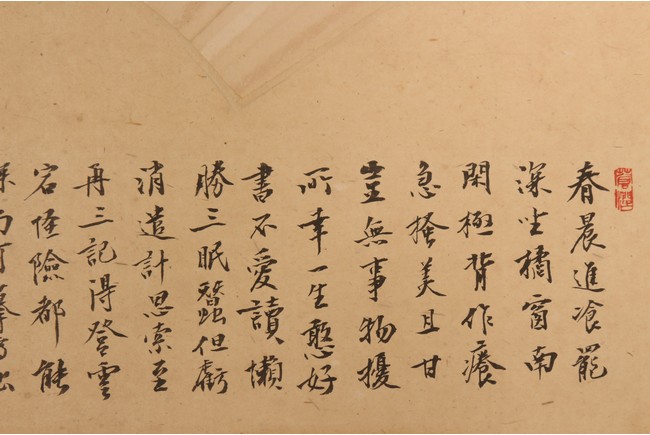 春晨進飡罷
深坐橘窗南
閑極背作癢
急搔美且甘
無事物擾
所幸一生憨好
書不愛讀懶
勝三眠蠶但虧
消遣計思索至
再三記得登雲
宕怪險都能